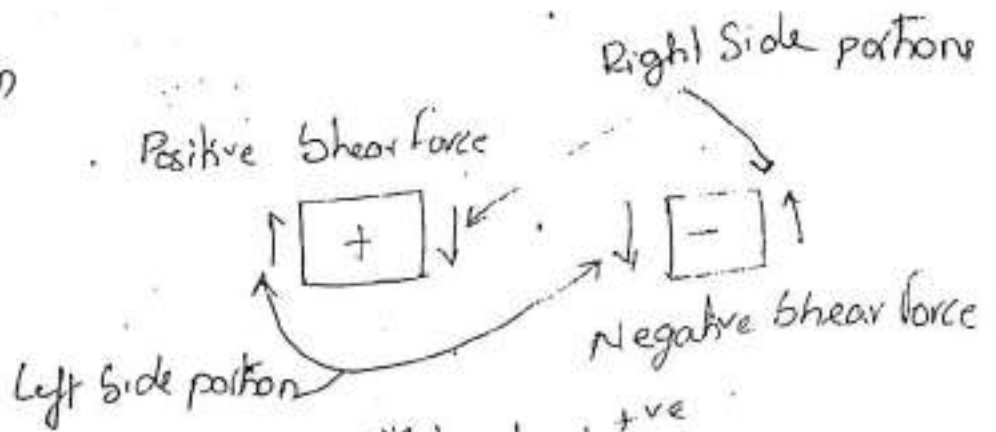 Right Side portions
Positive Shear force
+
-
Negative Shear force
Left Side portion
+ve